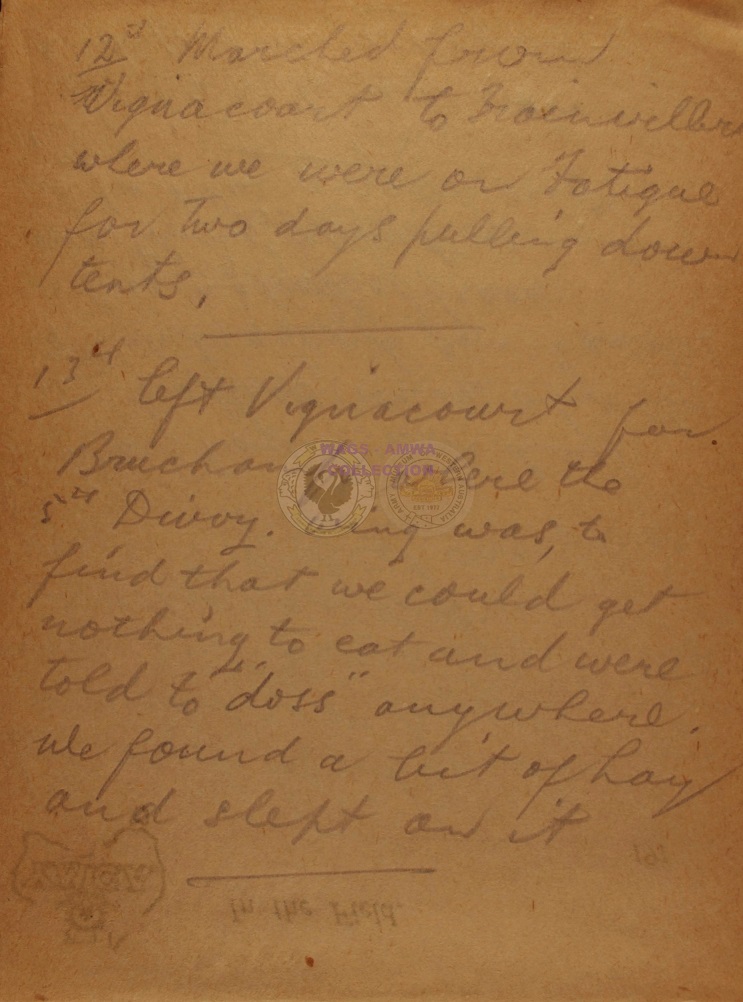 12th Marched from
Vignacourt to Frainvillers
where we were on Fatigue
for Two days pulling down
tents,
13th left Vignacourt for
where the
5th Divvy. was, to
find that we could get
nothing to eat and were
told to "doss" anywhere.
We found a bit of hay
and slept on it
WAGS - AMWA
COLLECTION
YMCA
In the Field.
191